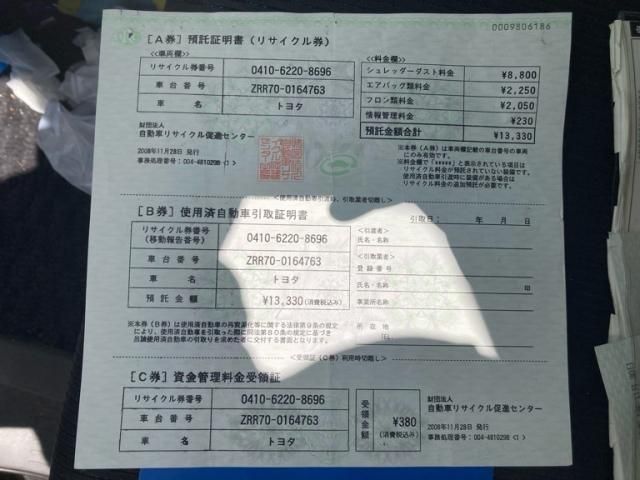 0009806186
[A券] 預託証明書 (リサイクル券)
<<車両欄>>
リサイクル券番号 0410-6220-8696
車台番号 ZRR70-0164763
車名 トヨタ
<<料金欄>>
シュレッダーダスト料金 ¥8,800
エアバッグ類料金 ¥2,250
フロン類料金 ¥2,050
情報管理料金 ¥230
預託金額合計 ¥13,330
財団法人
自動車リサイクル促進センター
2008年11月28日 発行
事務処理番号:004-4810298 <1>
※本券 (A券) は車両欄記載の車台番号の車両
にのみ有効です。
※料金欄で「*****」と表示されている項目は
リサイクル料金が預託されていない装備です。
使用済自動車引渡時に装備がある場合は
リサイクル料金の追加預託が必要です。
<使用済自動車引渡時、引取業者切離し>
[B券] 使用済自動車引取証明書
引取日: 年 月 日
リサイクル券番号
(移動報告番号) 0410-6220-8696
車台番号 ZRR70-0164763
車名 トヨタ
預託金額 ¥13,330(消費税込み)
<引渡者>
氏名・名称
<引取業者>
登録番号
氏名・名称 印
事業所名称
所在地
※本券 (B券) は使用済自動車の再資源化等に関する法律第9条の規定
により、使用済自動車を引取った際に同法第80条の規定に基づき
当該使用済自動車の引取りを求めた者に交付する書面となります。
<受領証 (C券) 利用時切離し>
[C券] 資金管理料金受領証
リサイクル券番号 0410-6220-8696
車台番号 ZRR70-0164763
車名 トヨタ
受領金額 ¥380
(消費税込み)
財団法人
自動車リサイクル促進センター
2008年11月28日 発行
事務処理番号:004-4810298 <1>